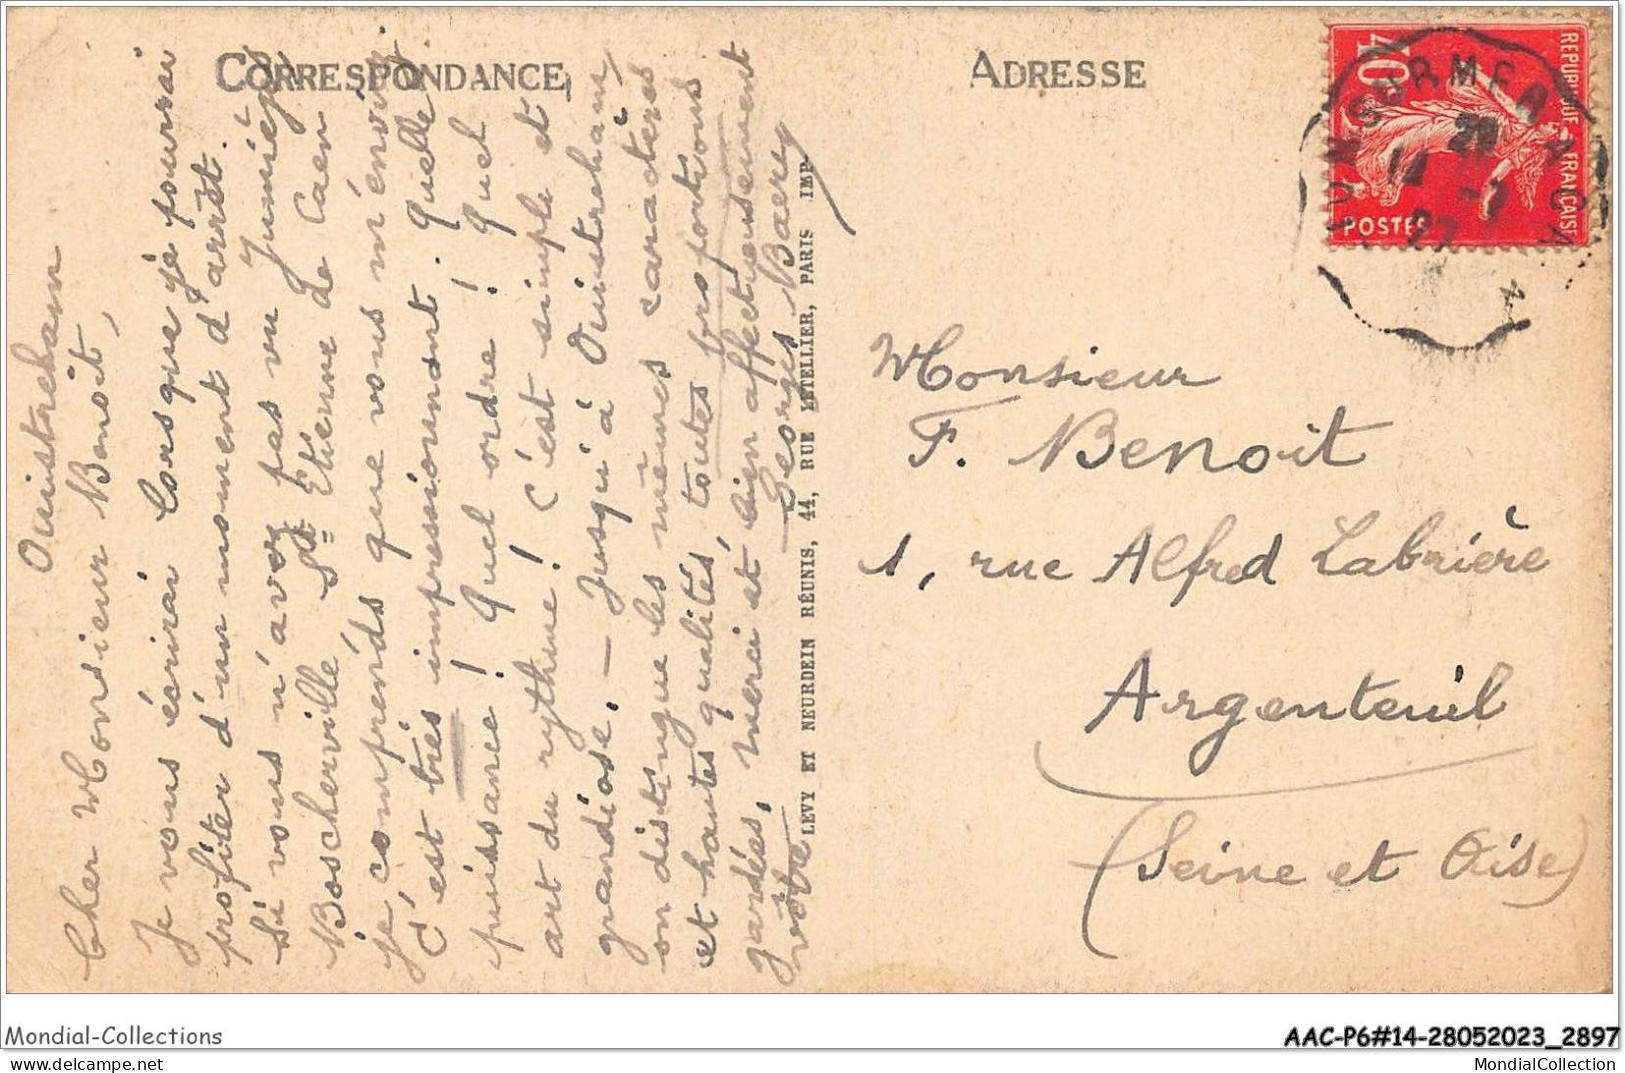 CORRESPONDANCE
ADRESSE
Ouistreham
Cher Monsieur Benoit,
Je vous écrirai lorsque je pourrai
profiter d'un moment d'arrêt.
Si vous n'avez pas vu Jumièges
Boscherville St Etienne de Caen
je comprends que vous m'enviez.
C'est très impressionnant. Quelle
puissance ! Quel ordre ! Quel
art du rythme ! C'est simple et
grandiose. — Jusqu'à Ouistreham,
on distingue les mêmes caractères
et hautes qualités, toutes proportions
gardées, merci et bien affectueusement
vôtre
Georges Baerey
LEVY ET NEURDEIN RÉUNIS, 44, RUE LETELLIER, PARIS IMP.
REPUBLIQUE FRANÇAISE
POSTES
SUR MER A
Monsieur
F. Benoit
1, rue Alfred Labrière
Argenteuil
(Seine et Oise)
Mondial-Collections
AAC-P6#14-28052023_2897
MondialCollection
MondialCollection